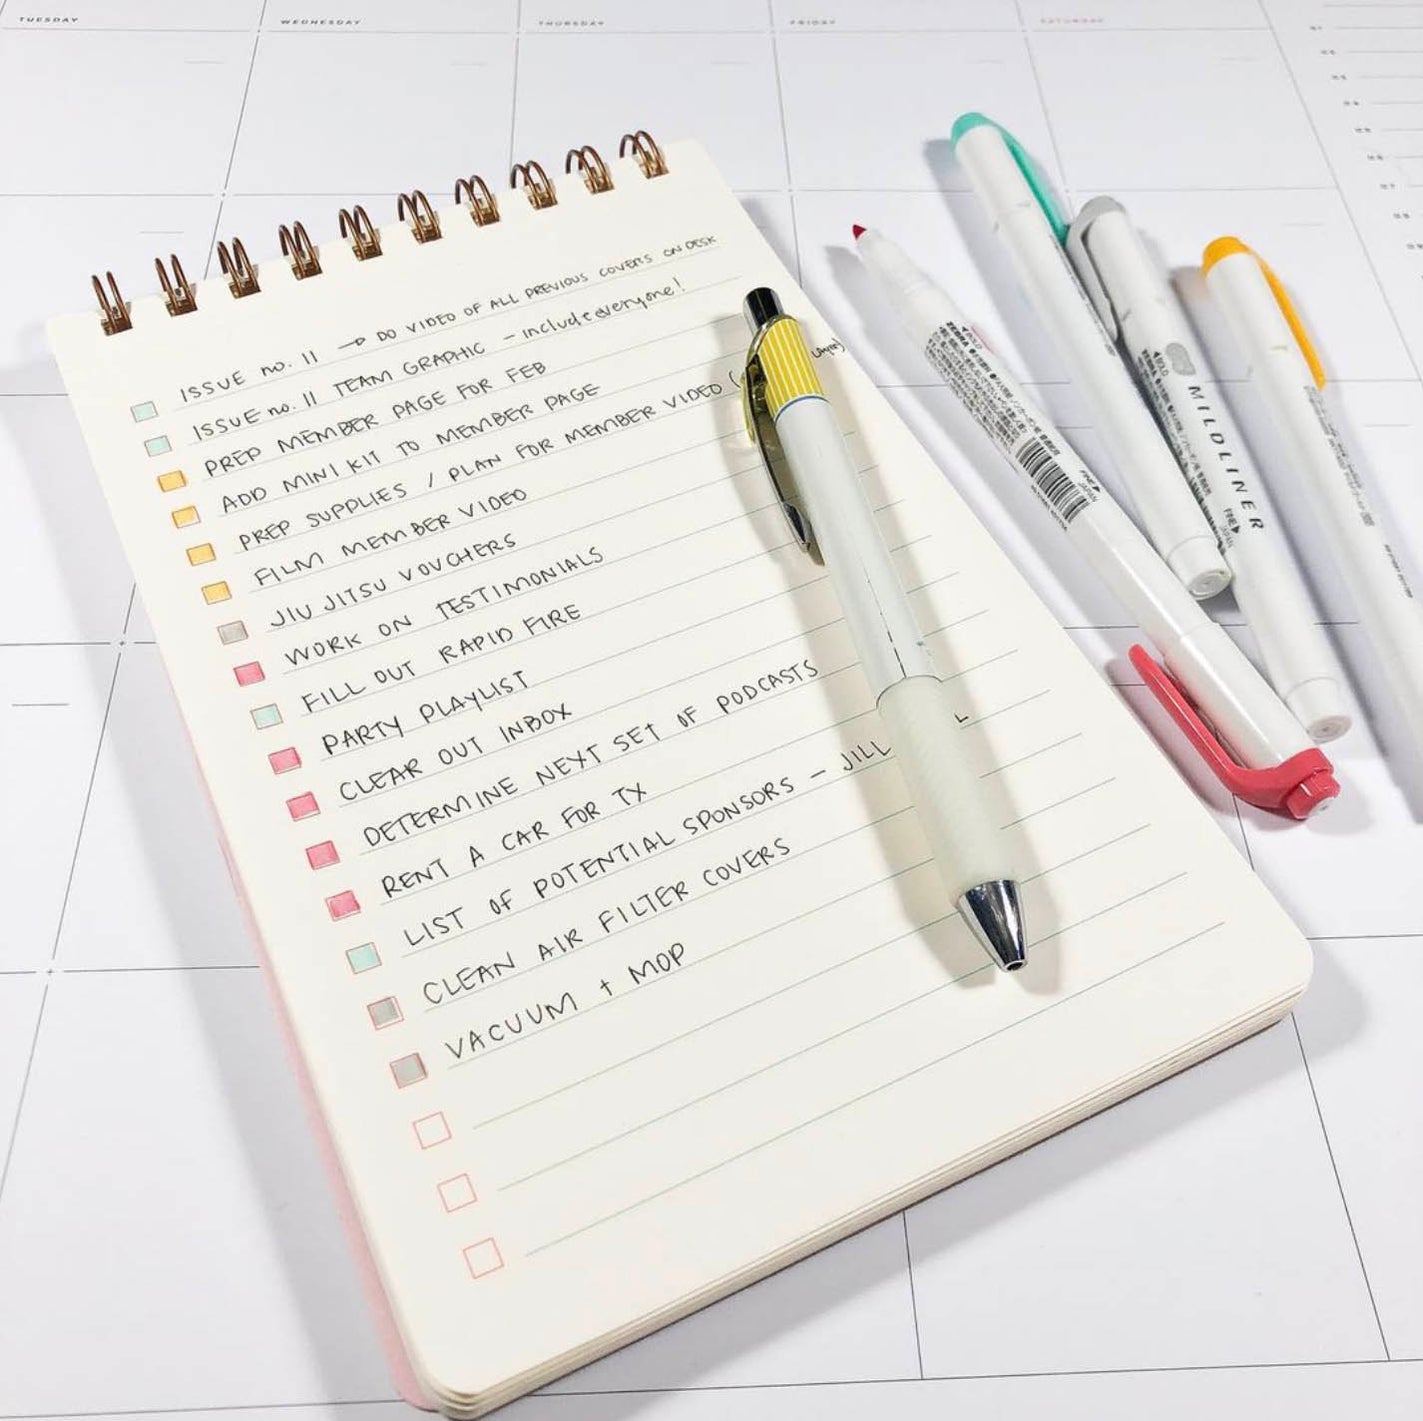 TUESDAY
WEDNESDAY
THURSDAY
FRIDAY
SATURDAY
ISSUE no. 11 → DO VIDEO OF ALL PREVIOUS COVERS ON DESK
ISSUE no. 11 TEAM GRAPHIC - include everyone!
PREP MEMBER PAGE FOR FEB
ADD MINI KIT TO MEMBER PAGE
PREP SUPPLIES / PLAN FOR MEMBER VIDEO (
FILM MEMBER VIDEO
JIU JITSU VOUCHERS
WORK ON TESTIMONIALS
FILL OUT RAPID FIRE
PARTY PLAYLIST
CLEAR OUT INBOX
DETERMINE NEXT SET OF PODCASTS
RENT A CAR FOR TX
LIST OF POTENTIAL SPONSORS - JILL
CLEAN AIR FILTER COVERS
VACUUM + MOP
MILDLINER
FINE
JAPAN
ZEBRA
BOLD
FINE
JAPAN